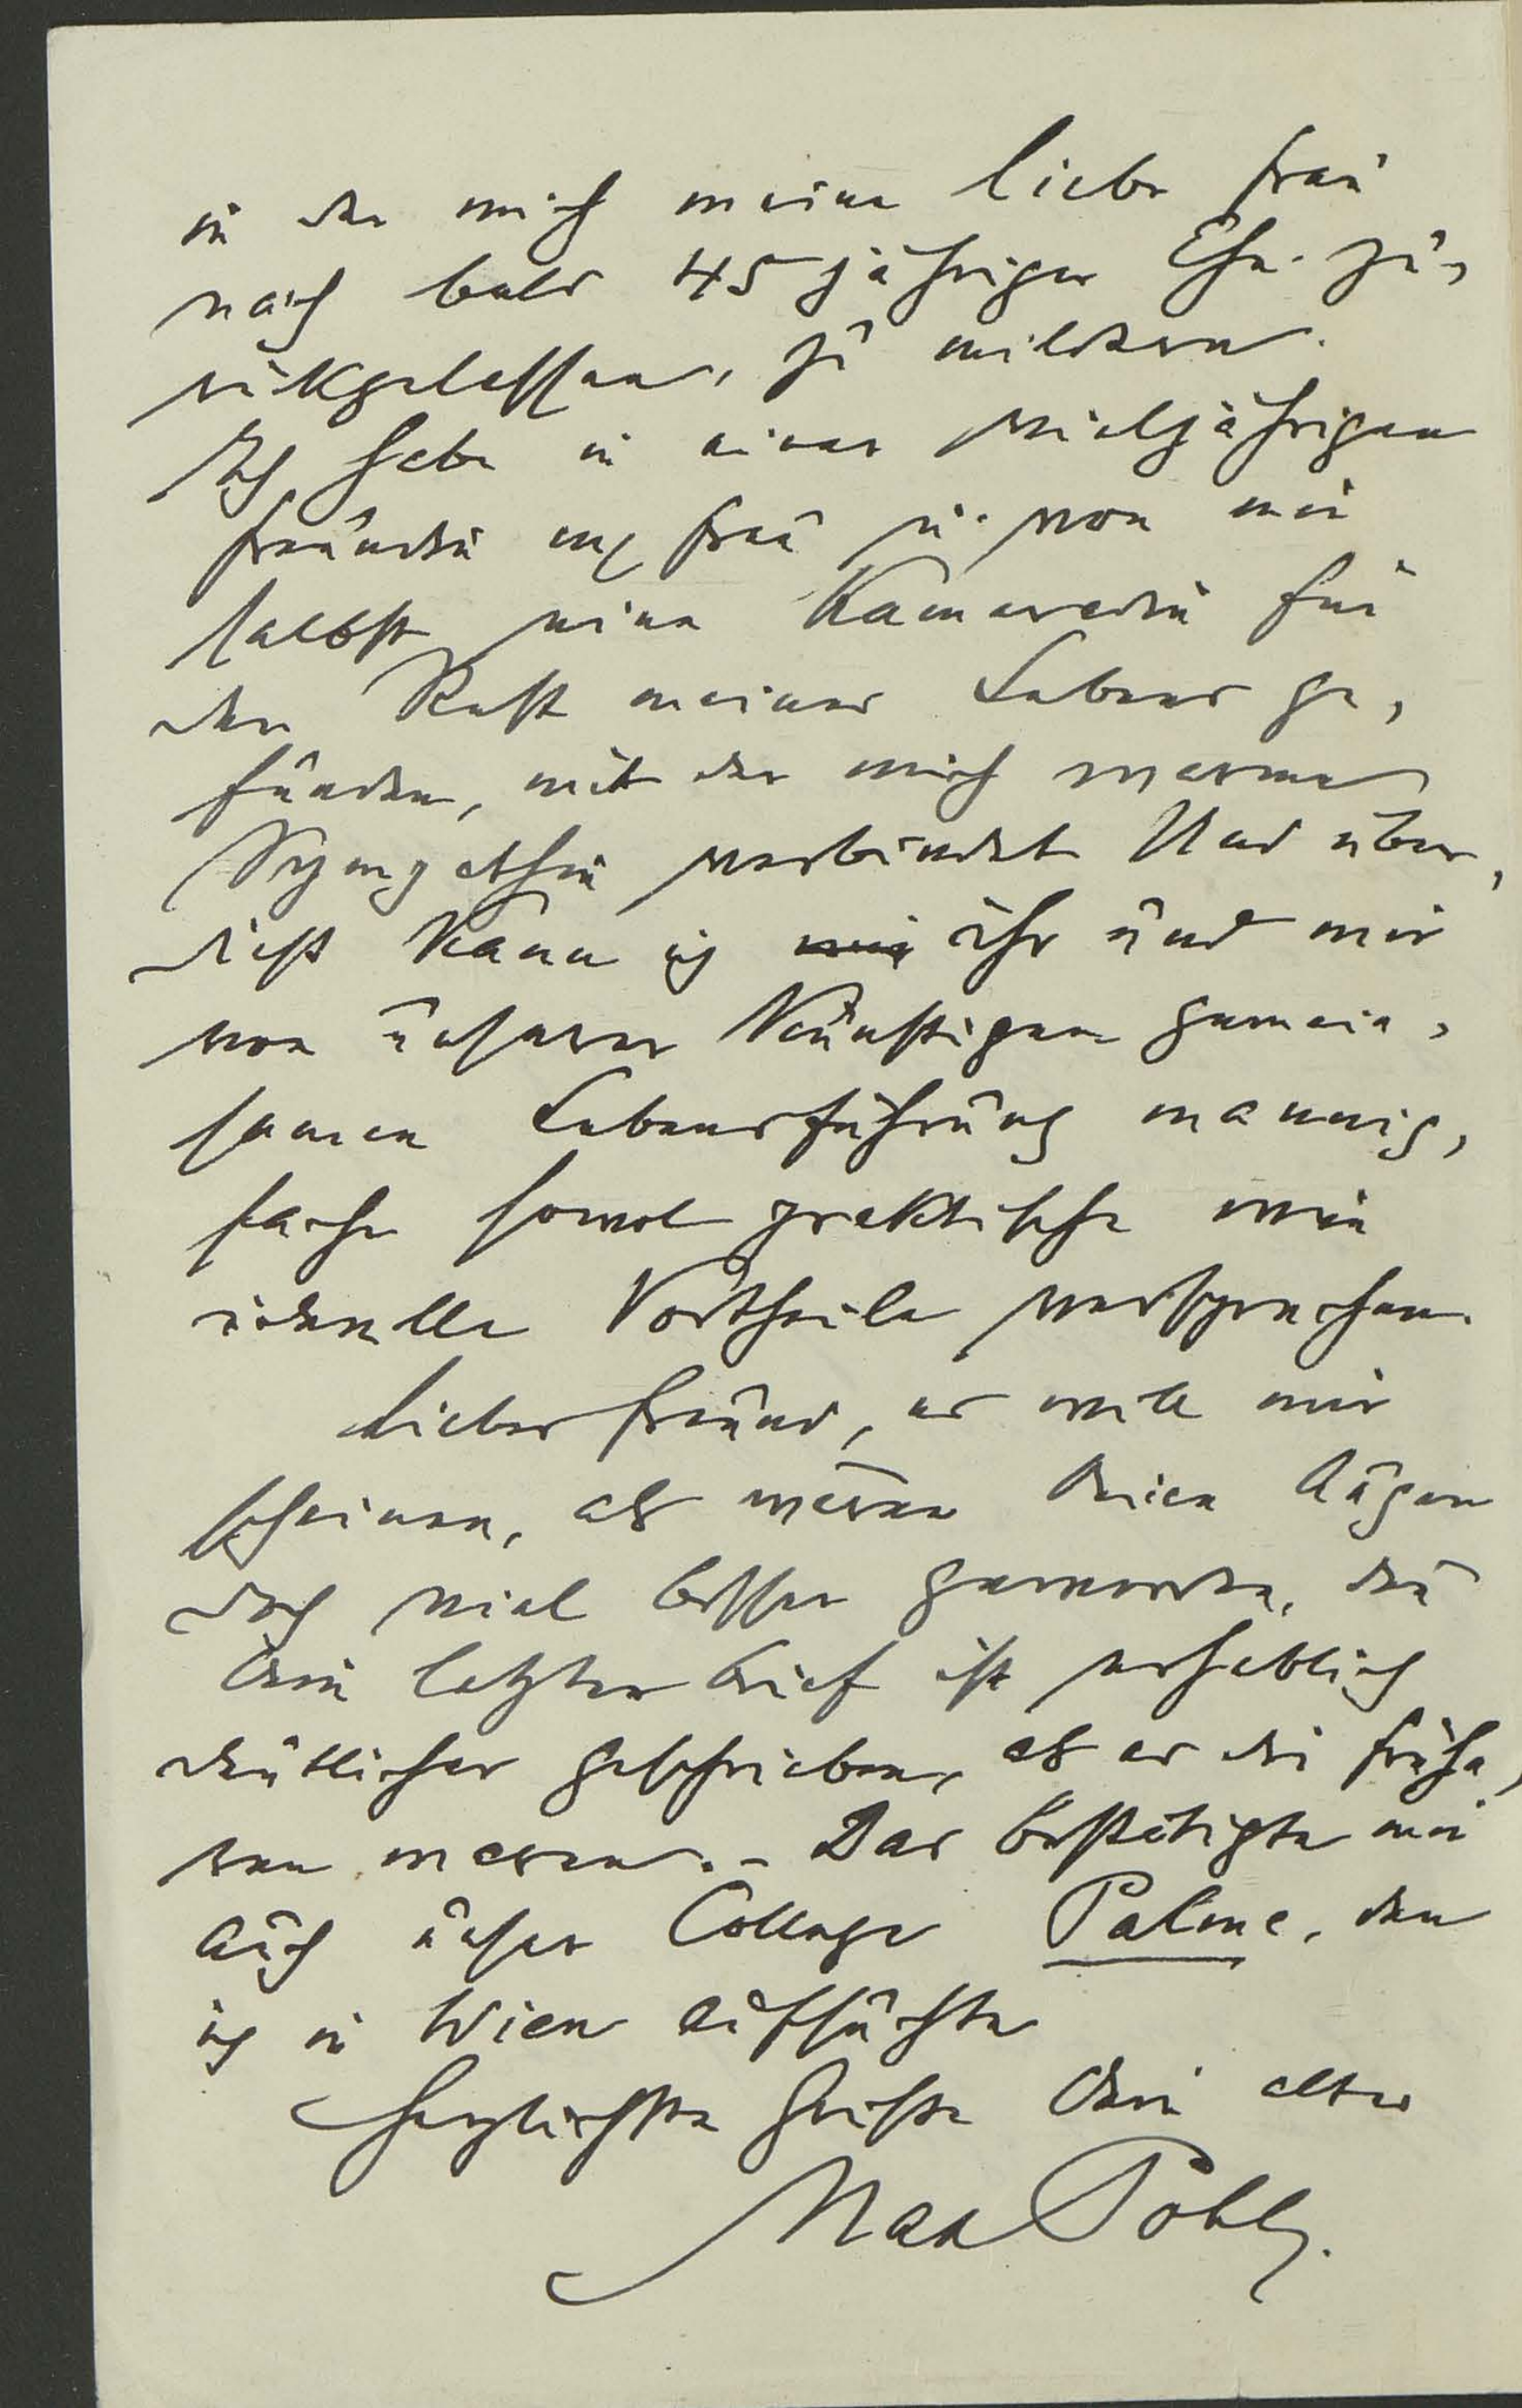 in der mich meine liebe Frau
nach bald 45jähriger Ehe zu-
rükgelassen, zu mildern.
Ich habe in einer vieljährigen
Freundin mr Frau u. von mir
selbst eine Kameradin für
den Rest meines Lebens ge-
funden, mit der mich warme
Sympathie verbindet Und über-
dieß kann ich ihr und mir
von unserer künftigen gemein-
samen Lebensführung mannig-
fache sowol praktische wie
ideelle Vortheile versprechen.
Lieber Freund, es will mir
scheinen, als wären Deine Augen
doch viel besser geworden, den
Dein letzter Brief ist erheblich
deutlicher geschrieben, als es die frühe-
ren waren. - Das bestätigte mir
auch unser College Palme, den
ich in Wien aufsuchte
Herzlichste Grüße Dein alter
Max Pohl.